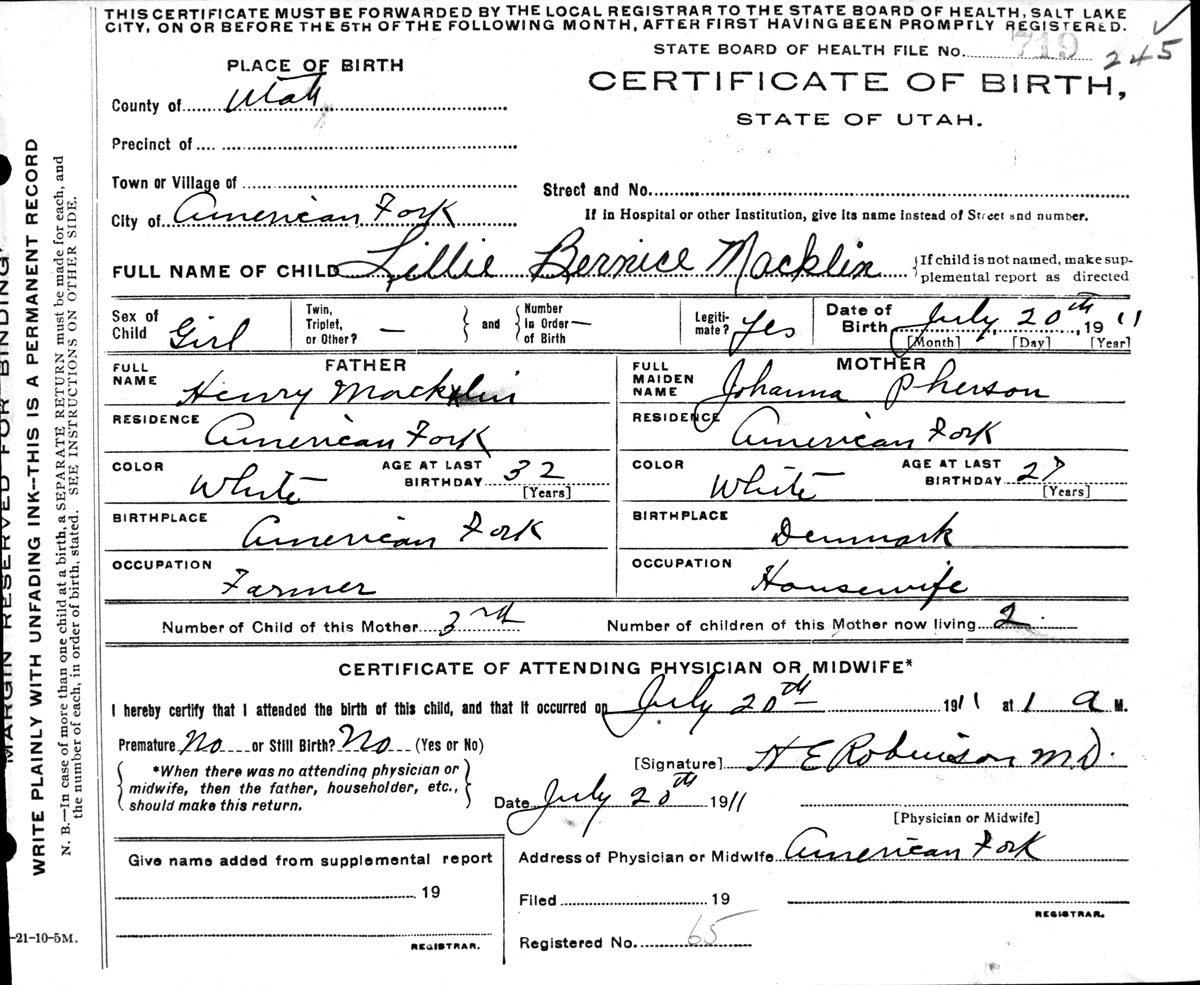 THIS CERTIFICATE MUST BE FORWARDED BY THE LOCAL REGISTRAR TO THE STATE BOARD OF HEALTH, SALT LAKE
CITY, ON OR BEFORE THE 5TH OF THE FOLLOWING MONTH, AFTER FIRST HAVING BEEN PROMPTLY REGISTERED.
STATE BOARD OF HEALTH FILE No. 719 245
PLACE OF BIRTH
CERTIFICATE OF BIRTH,
STATE OF UTAH.
County of Utah
Precinct of
Town or Village of
Street and No.
City of American Fork
If in Hospital or other Institution, give its name instead of Street and number.
FULL NAME OF CHILD Lillie Bernice Macklin
If child is not named, make sup-
plemental report as directed
Sex of Child Girl
Twin, Triplet, or Other? —
and
Number in Order of Birth —
Legiti-mate? Yes
Date of Birth July 20th, 1911
[Month] [Day] [Year]
FATHER
FULL NAME Henry Macklin
RESIDENCE American Fork
COLOR White AGE AT LAST BIRTHDAY 32
[Years]
BIRTHPLACE American Fork
OCCUPATION Farmer
MOTHER
FULL MAIDEN NAME Johanna Pherson
RESIDENCE American Fork
COLOR White AGE AT LAST BIRTHDAY 27
[Years]
BIRTHPLACE Denmark
OCCUPATION Housewife
Number of Child of this Mother 3rd Number of children of this Mother now living 2
CERTIFICATE OF ATTENDING PHYSICIAN OR MIDWIFE*
I hereby certify that I attended the birth of this child, and that it occurred on July 20th 1911 at 1 a M.
Premature No or Still Birth? No (Yes or No)
[Signature] H E Robinson M.D.
*When there was no attending physician or
midwife, then the father, householder, etc.,
should make this return.
Date July 20th 1911
[Physician or Midwife]
Give name added from supplemental report
19
REGISTRAR.
Address of Physician or Midwife American Fork
Filed 19
REGISTRAR.
Registered No. 65
-21-10-5M.
MARGIN RESERVED FOR BINDING
WRITE PLAINLY WITH UNFADING INK--THIS IS A PERMANENT RECORD
N. B.—In case of more than one child at a birth, a SEPARATE RETURN must be made for each, and
the number of each, in order of birth, stated. SEE INSTRUCTIONS ON OTHER SIDE.